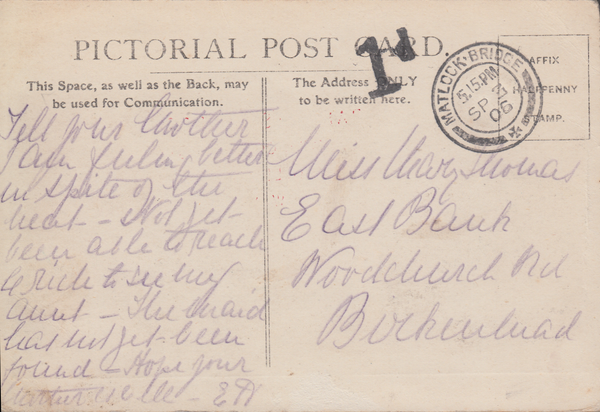 PICTORIAL POST CARD.
1d
MATLOCK·BRIDGE
5.15PM
SP 3
06
AFFIX
HALFPENNY
STAMP.
This Space, as well as the Back, may
be used for Communication.
The Address ONLY
to be written here.
Tell your Mother
I am feeling better
in spite of the
heat – Not yet
been able to reach
to see my
aunt – The maid
has not yet been
found – Hope your
Miss Mary Thomas
East Bank
Woodchurch Rd
Birkenhead